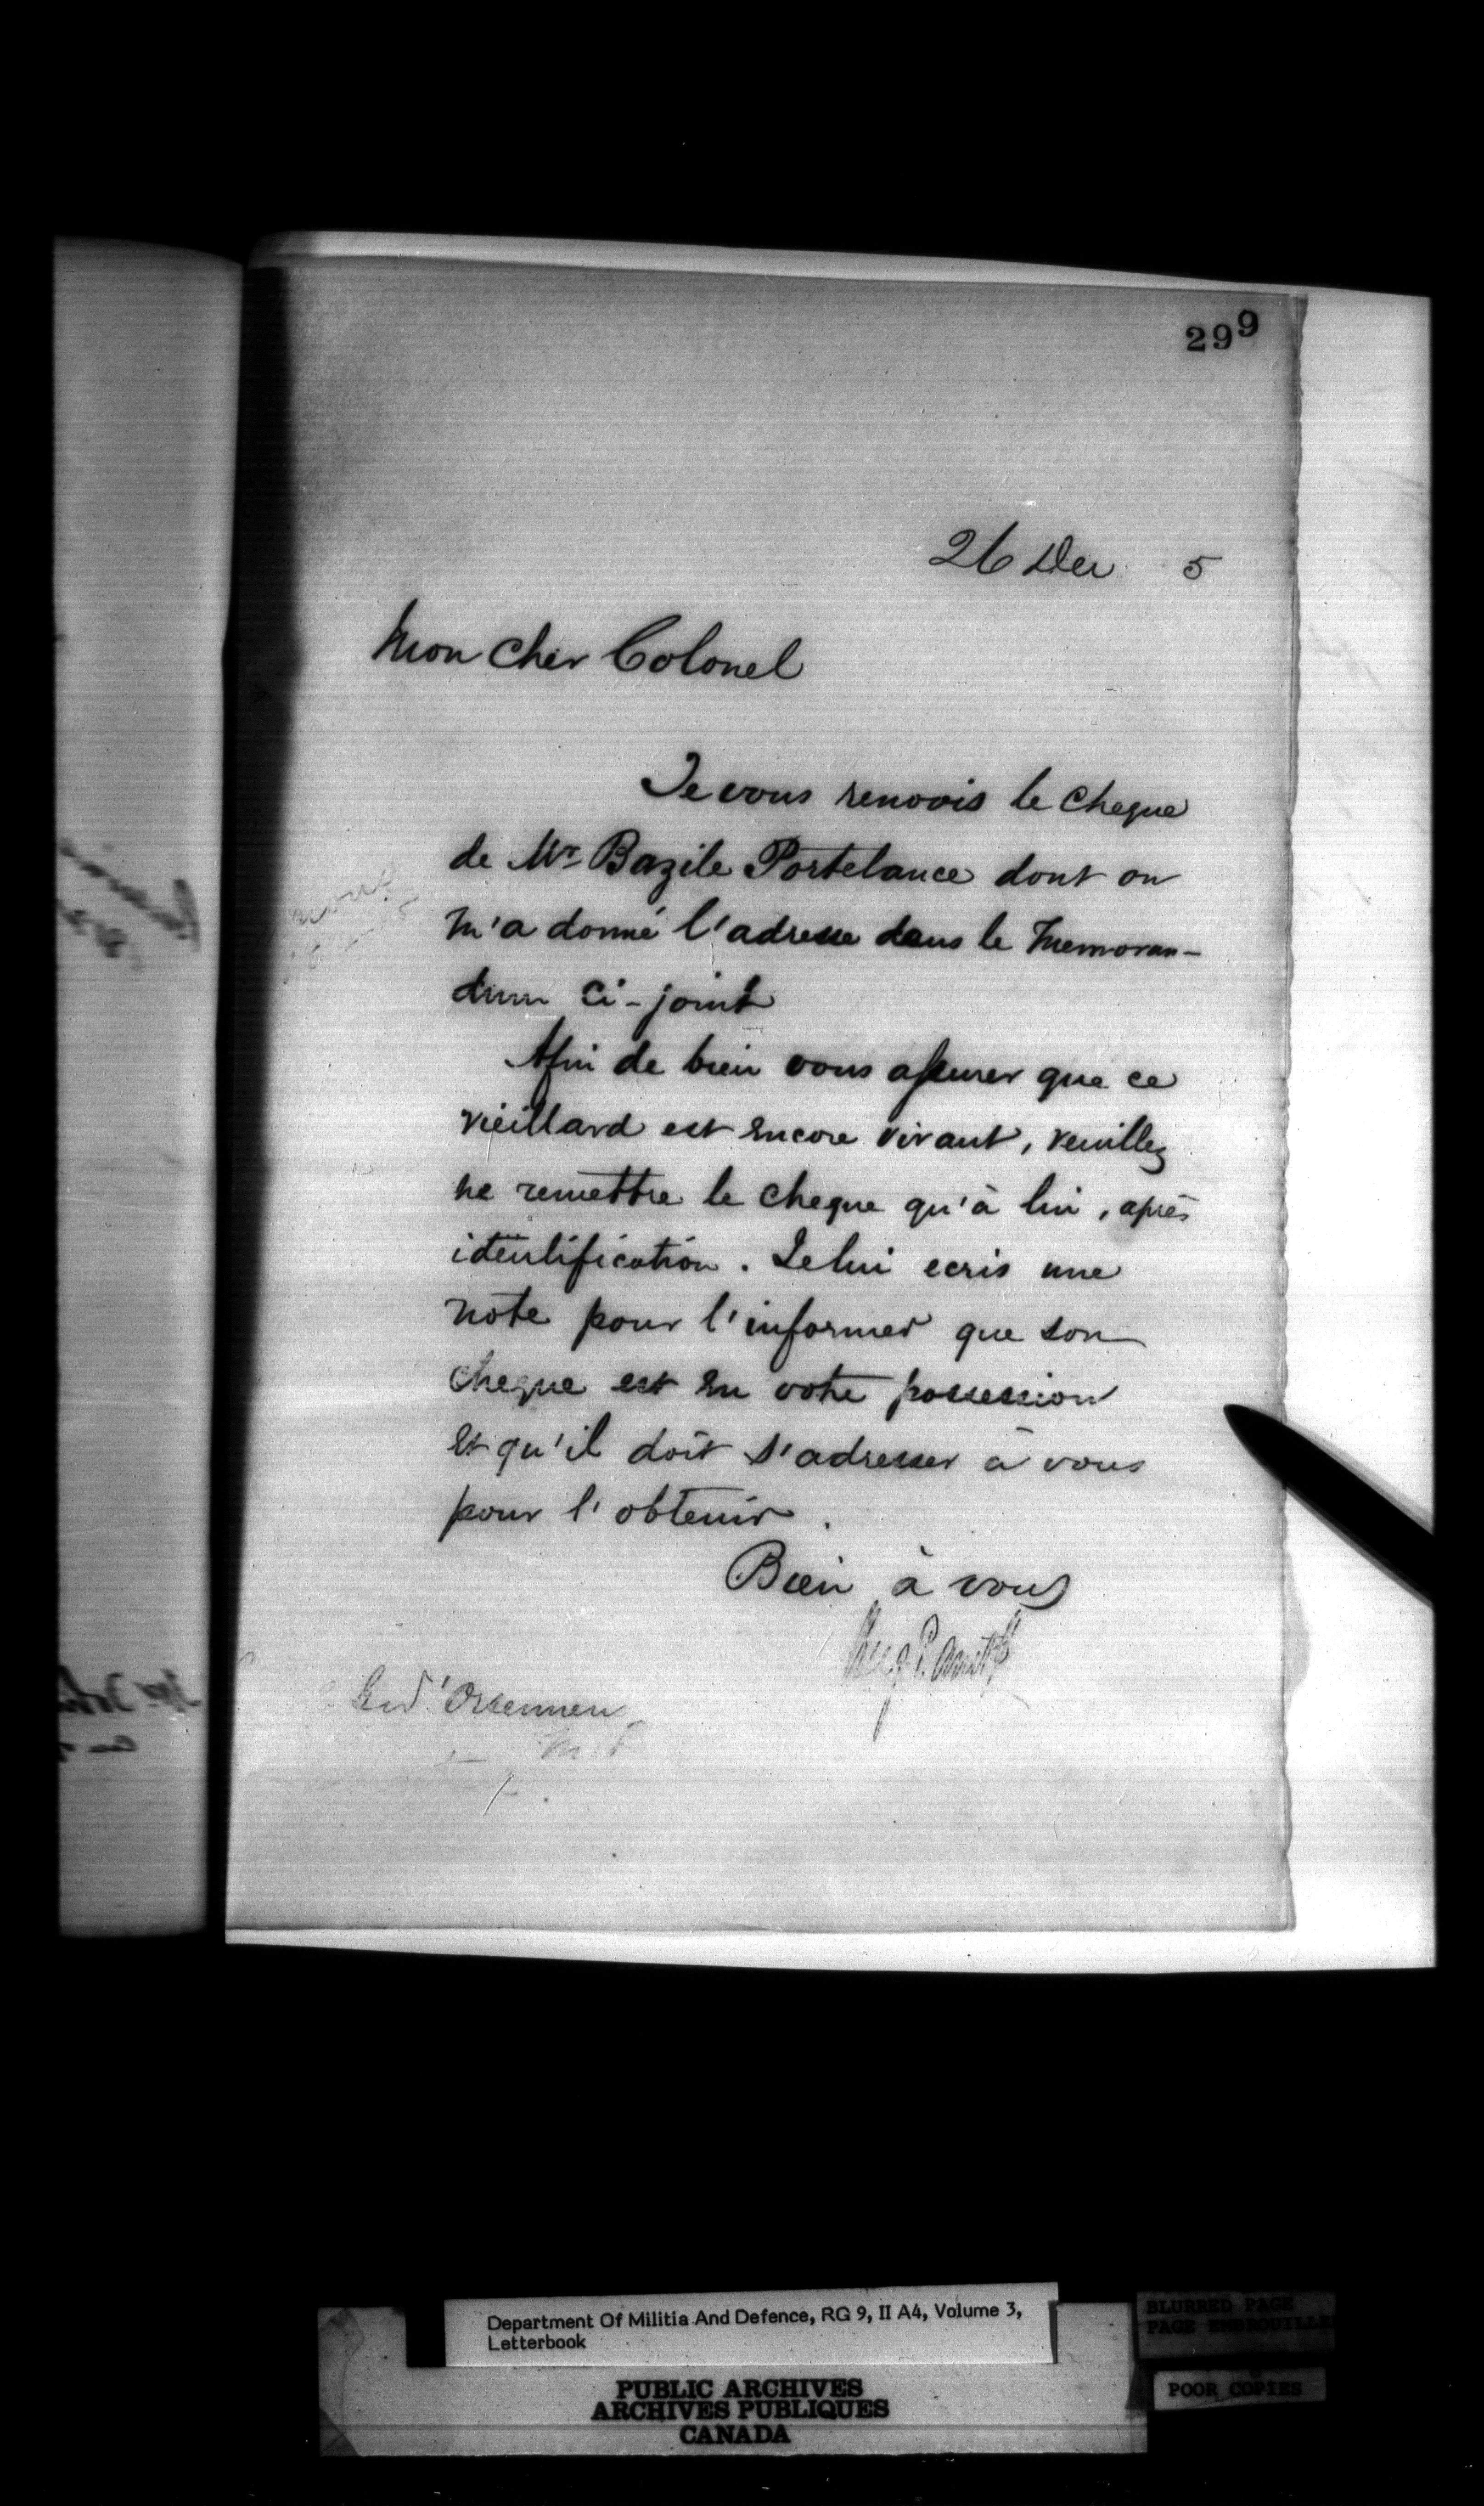 299
26 Dec 5
Mon cher Colonel
Je vous renvois le cheque
de Mr Bazile Portelance dont on
m'a donné l'adresse dans le memoran-
dum ci-joint
Afin de bien vous assurer que ce
vieillard est encore vivant, veuillez
ne remettre le cheque qu'à lui, après
identification. Je lui ecris une
note pour l'informer que son
cheque est en votre possession
et qu'il doit s'adresser à vous
pour l'obtenir.
Bien à vous
d'Orsennens
Department Of Militia And Defence, RG 9, II A4, Volume 3,
Letterbook
PUBLIC ARCHIVES
ARCHIVES PUBLIQUES
CANADA
BLURRED PAGE
PAGE EMBROUILLE
POOR COPIES